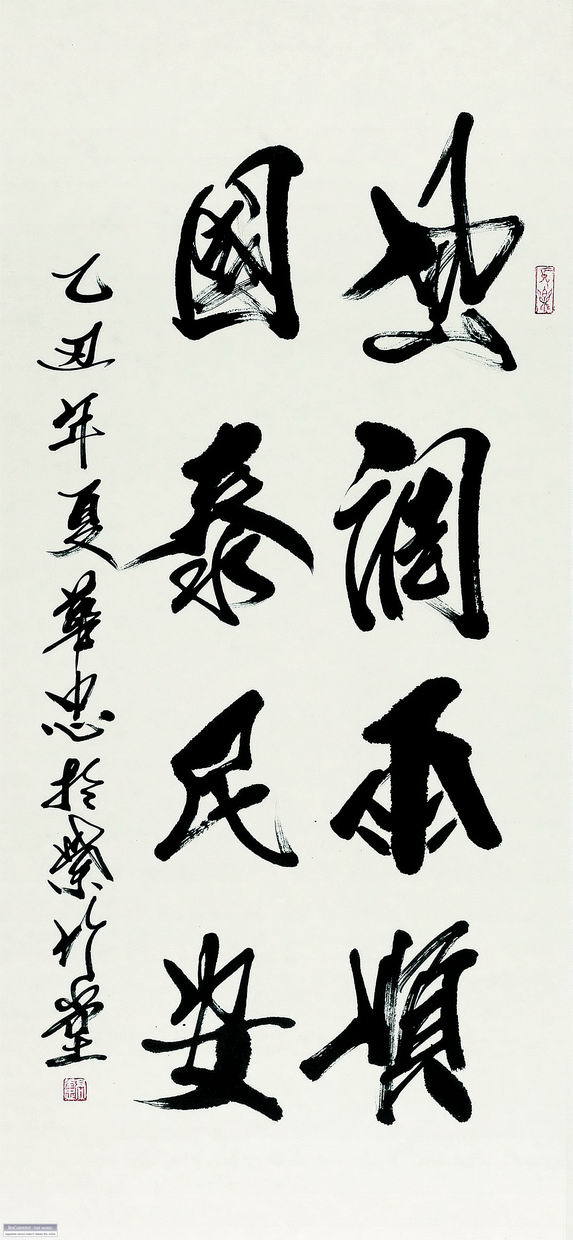 風調雨順
國泰民安
乙丑年夏華忠於紫竹堂